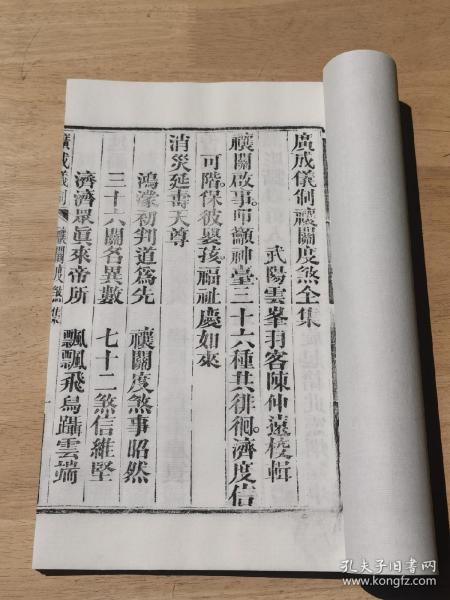 廣成儀制禳關度煞全集
武陽雲峯羽客陳仲遠校輯
禳關啟事。叩籲神臺三十六種共徘徊。濟度信
可階。保彼嬰孩福祉慶如來
消災延壽天尊
鴻濛初判道為先　禳關度煞事昭然
三十六關名異數　七十二煞信維堅
濟濟眾眞來帝所　飄飄飛舄躡雲端
廣成儀制　禳關度煞集
孔夫子旧书网
www.kongfz.com